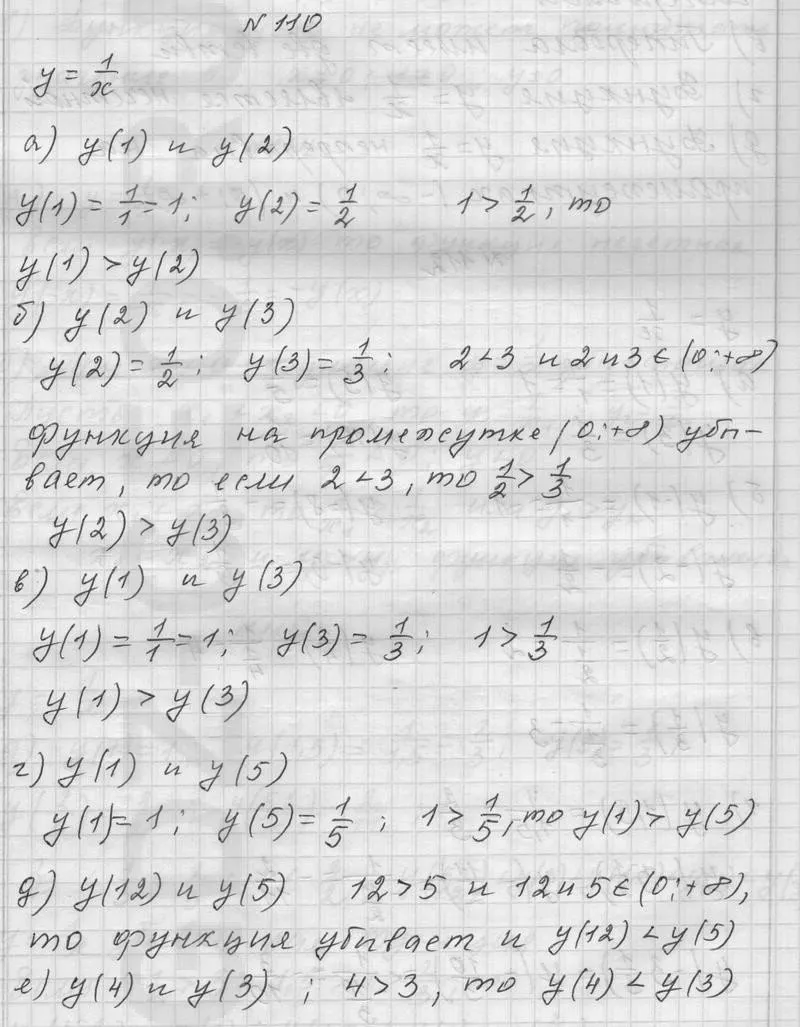 № 110
y = 1/x
а) y(1) и y(2)
y(1) = 1/1 = 1; y(2) = 1/2 1 > 1/2, то
y(1) > y(2)
б) y(2) и y(3)
y(2) = 1/2; y(3) = 1/3; 2 < 3 и 2 и 3 ∈ (0; +∞)
функция на промежутке (0; +∞) убы-
вает, то если 2 < 3, то 1/2 > 1/3
y(2) > y(3)
в) y(1) и y(3)
y(1) = 1/1 = 1; y(3) = 1/3; 1 > 1/3
y(1) > y(3)
г) y(1) и y(5)
y(1) = 1; y(5) = 1/5; 1 > 1/5, то y(1) > y(5)
д) y(12) и y(5) 12 > 5 и 12 и 5 ∈ (0; +∞),
то функция убывает и y(12) < y(5)
е) y(4) и y(3); 4 > 3, то y(4) < y(3)